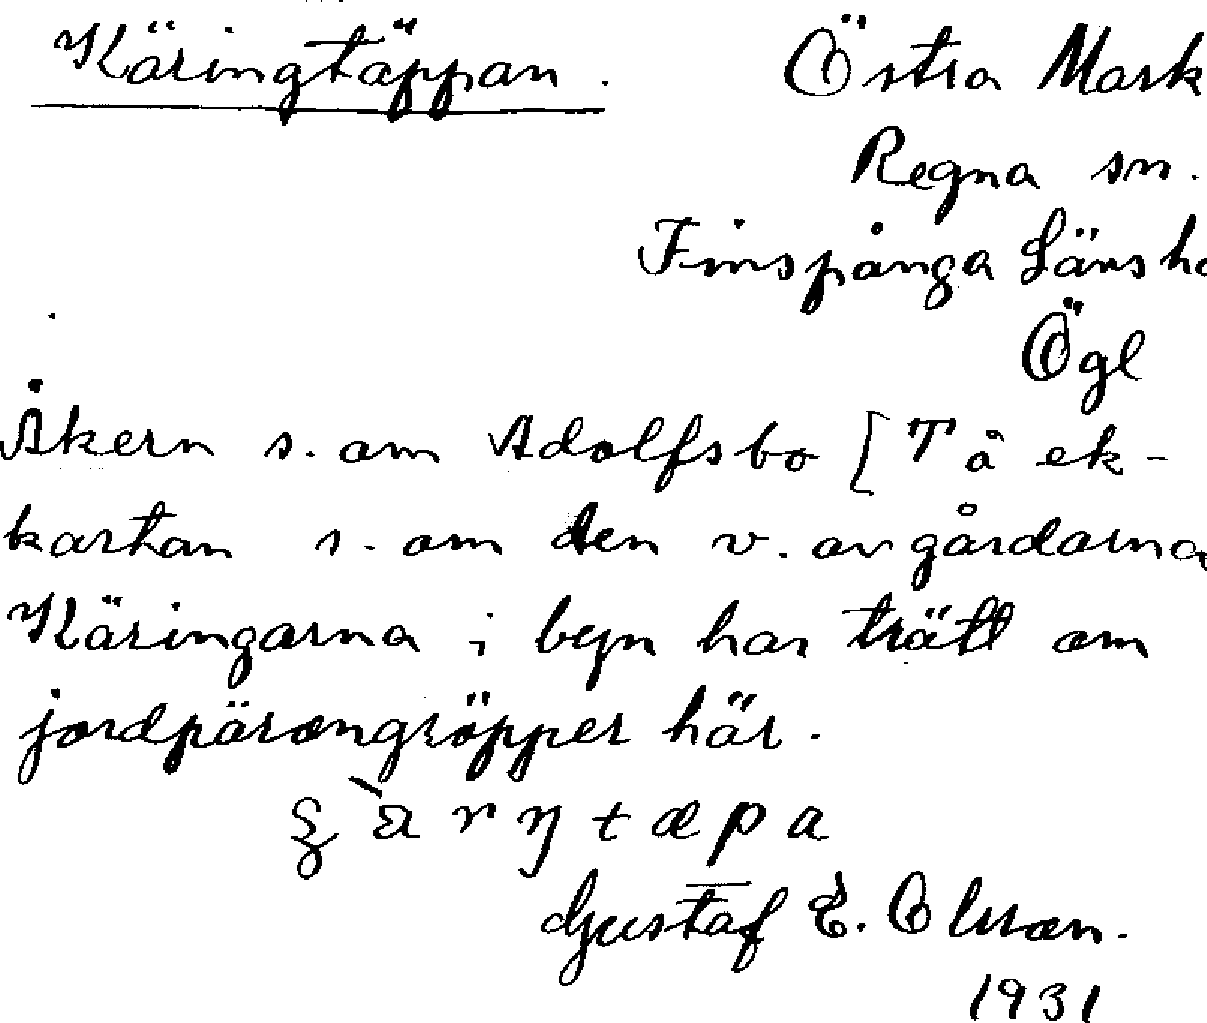 Käringtäppan. Östra Mark
Regna sn.
Finspånga Läns hd
Ögl
Åkern s. om Adolfsbo [T å ek-
kartan s. om den v. av gårdarna
Käringarna i byn har trätt om
jordpärongröpper här.
Gustaf E. Olsson.
1931